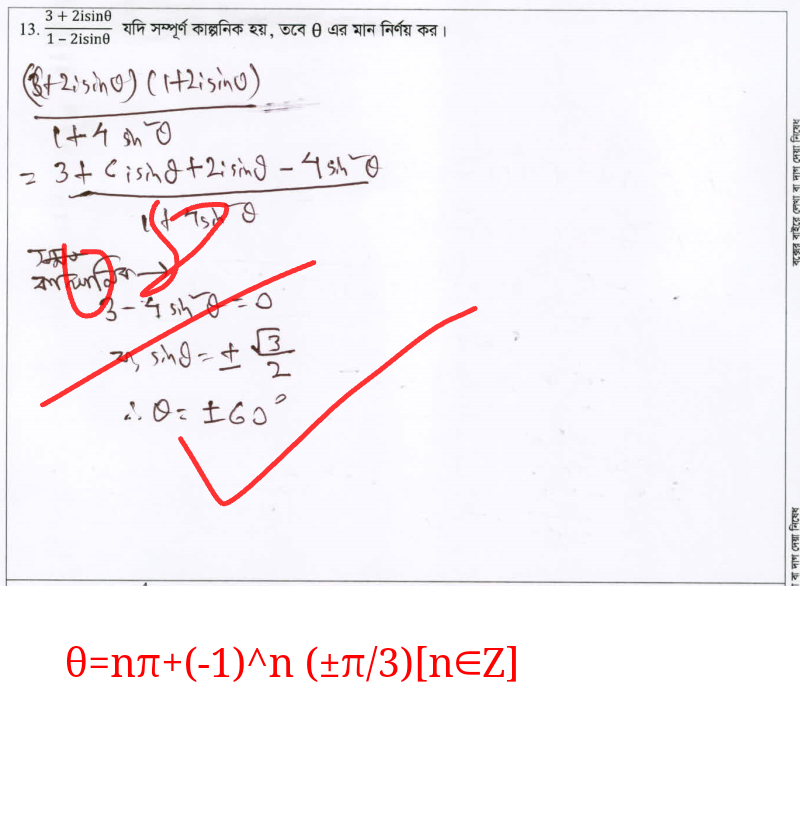 13. (3 + 2isinθ)/(1 − 2isinθ) যদি সম্পূর্ণ কাল্পনিক হয়, তবে θ এর মান নির্ণয় কর।
(3+2isinθ)(1+2isinθ)
1+4 sin²θ
= 3+6isinθ+2isinθ−4sin²θ
1+4sin²θ
3−4sin²θ=0
বা, sinθ=± √3/2
∴ θ= ±60°
θ=nπ+(-1)^n (±π/3)[n∈Z]
বক্সের বাইরে লেখা বা দাগ দেয়া নিষেধ
বা দাগ দেয়া নিষেধ